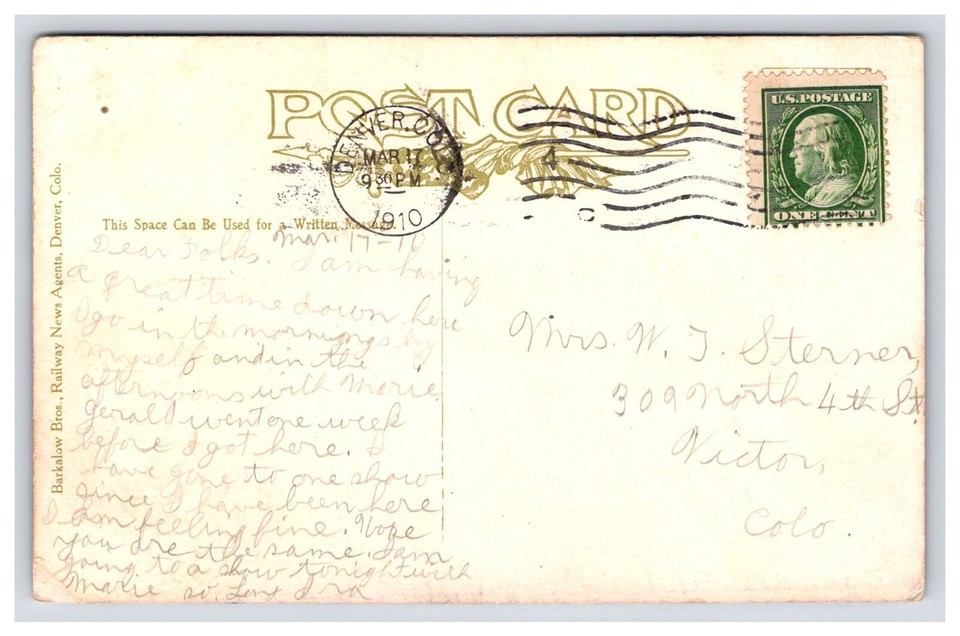 POST CARD
DENVER, COLO.
MAR 17
9 30 PM
1910
4
C
U.S. POSTAGE
ONE CENT
This Space Can Be Used for a Written Message.
Barkalow Bros., Railway News Agents, Denver, Colo.
Mar. 17-10
Dear Folks. I am having
a great time down here
I go in the mornings by
myself and in the
afternoons with Marie.
Gerald went one week
before I got here. I
have gone to one show
since I have been here
I am feeling fine. Hope
you are the same. I am
going to a show tonight with
Marie so. Long Ira
Mrs. W. J. Sterner,
309 North 4th St.
Victor,
Colo.